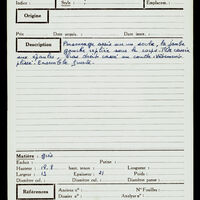 Indice : Style : ? Emplacem. :
Origine
Prix : Date acquis. : Date invent. :
Description Personnage assis sur un socle, la jambe
gauche repliée sous le corps. Tête cassée
aux épaules. Bras droit cassé au coude. Vêtement
plissé. Ensemble
Matière : grès
Enduit : Patine :
Hauteur : 19.8 haut. tenon : Longueur :
Largeur : 13 Epaisseur : 21 Profondeur :
Diamètre col. : Diamètre panse :
Références Ancien n° : N° Fouilles :
Dossier n° : Analyse n° :